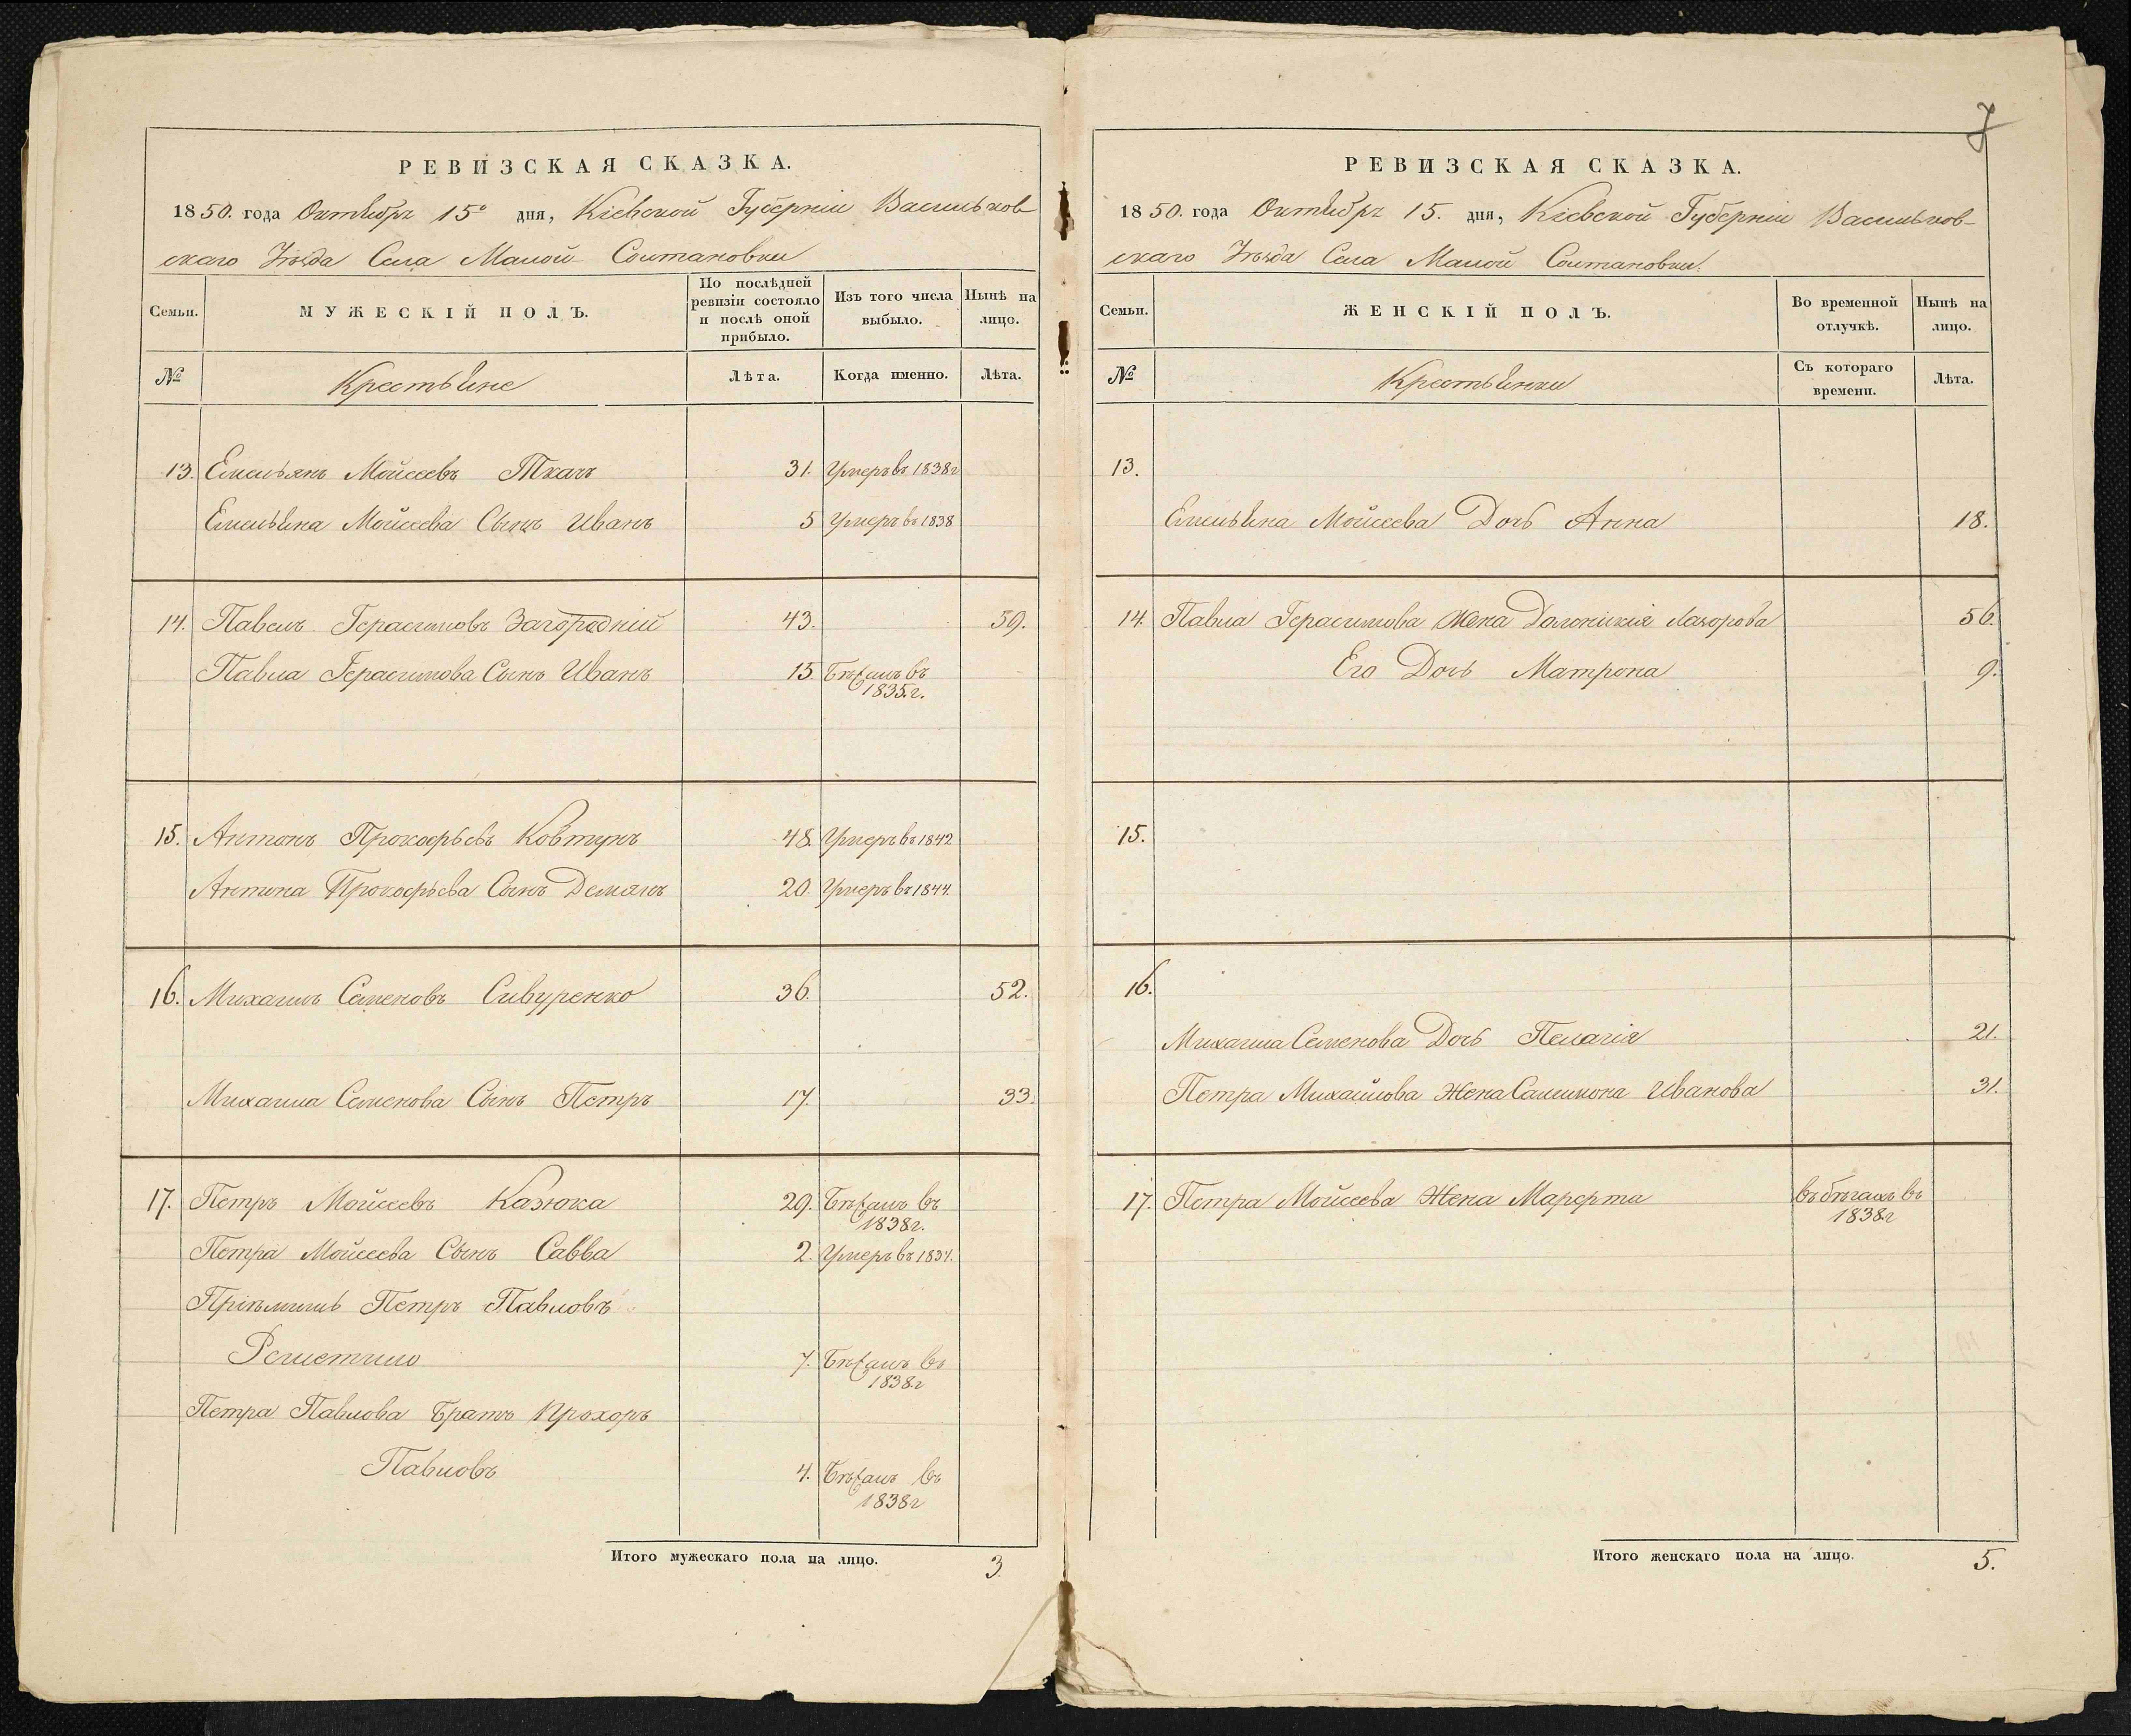 7
РЕВИЗСКАЯ СКАЗКА.
1850. года Октября 15° дня, Кіевской Губерніи Васильков-
скаго Уѣзда Села Малой Солтановки
Семьи.
МУЖЕСКІЙ ПОЛЪ.
По послѣдней ревизіи состояло и послѣ оной прибыло.
Изъ того числа выбыло.
Нынѣ на лицо.
№
Крестьяне
Лѣта.
Когда именно.
Лѣта.
13. Емельянъ Мойсеевъ Ткачъ 31. Умеръ въ 1838г
Емельяна Мойсеева Сынъ Иванъ 5 Умеръ въ 1838
14. Павелъ Герасимовъ Загородній 43. 59.
Павла Герасимова Сынъ Иванъ 15 Бѣжалъ въ
1835.г.
15. Антонъ Прокофьевъ Ковтунъ 48. Умеръ въ 1842
Антона Прокофьева Сынъ Демянъ 20. Умеръ въ 1844.
16. Михаилъ Семеновъ Сивуренко 36. 52.
Михаила Семенова Сынъ Петръ 17. 33.
17. Петръ Мойсеевъ Казюка 29. Бѣжалъ въ
1838г.
Петра Мойсеева Сынъ Савва 2. Умеръ въ 1837.
Пріємышъ Петръ Павловъ
7. Бѣжалъ въ
1838.г
Петра Павлова Братъ Прохоръ
Павловъ 4. Бѣжалъ въ
1838г
Итого мужескаго пола на лицо. 3.
РЕВИЗСКАЯ СКАЗКА.
1850. года Октября 15. дня, Кіевской Губерніи Васильков-
скаго Уѣзда Села Малой Солтановки.
Семьи.
ЖЕНСКІЙ ПОЛЪ.
Во временной отлучкѣ.
Нынѣ на лицо.
№
Крестьянки
Съ котораго времени.
Лѣта.
13.
Емельяна Мойсеева Дочь Анна 18.
14. Павла Герасимова Жена Лазорова 56.
Его Дочь Матрона 9.
15.
16.
Михаила Семенова Дочь Пелагія 21.
Петра Михайлова Жена Саломона Иванова 31.
17. Петра Мойсеева Жена Марфта въ бѣгахъ въ
1838г
Итого женскаго пола на лицо. 5.